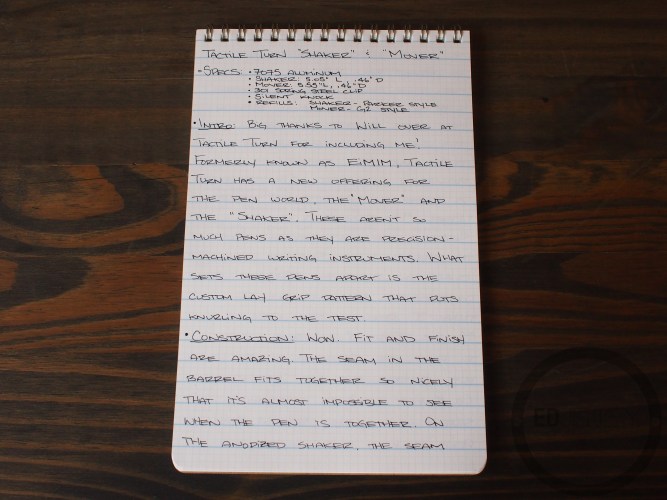 TACTILE TURN "SHAKER" & "MOVER"
• SPECS: • 7075 ALUMINUM
• SHAKER: 5.05" L, .46" D
• MOVER: 5.55" L, .46" D
• 301 SPRING STEEL CLIP
• SILENT KNOCK
• REFILLS: SHAKER - PARKER STYLE
MOVER - G2 STYLE
• INTRO: BIG THANKS TO WILL OVER AT
TACTILE TURN FOR INCLUDING ME!
FORMERLY KNOWN AS EIMIM, TACTILE
TURN HAS A NEW OFFERING FOR
THE PEN WORLD, THE "MOVER" AND
THE "SHAKER". THESE ARENT SO
MUCH PENS AS THEY ARE PRECISION-
MACHINED WRITING INSTRUMENTS. WHAT
SETS THESE PENS APART IS THE
CUSTOM LAY GRIP PATTERN THAT PUTS
KNURLING TO THE TEST.
• CONSTRUCTION: WOW. FIT AND FINISH
ARE AMAZING. THE SEAM IN THE
BARREL FITS TOGETHER SO NICELY
THAT IT'S ALMOST IMPOSSIBLE TO SEE
WHEN THE PEN IS TOGETHER. ON
THE ANODIZED SHAKER, THE SEAM